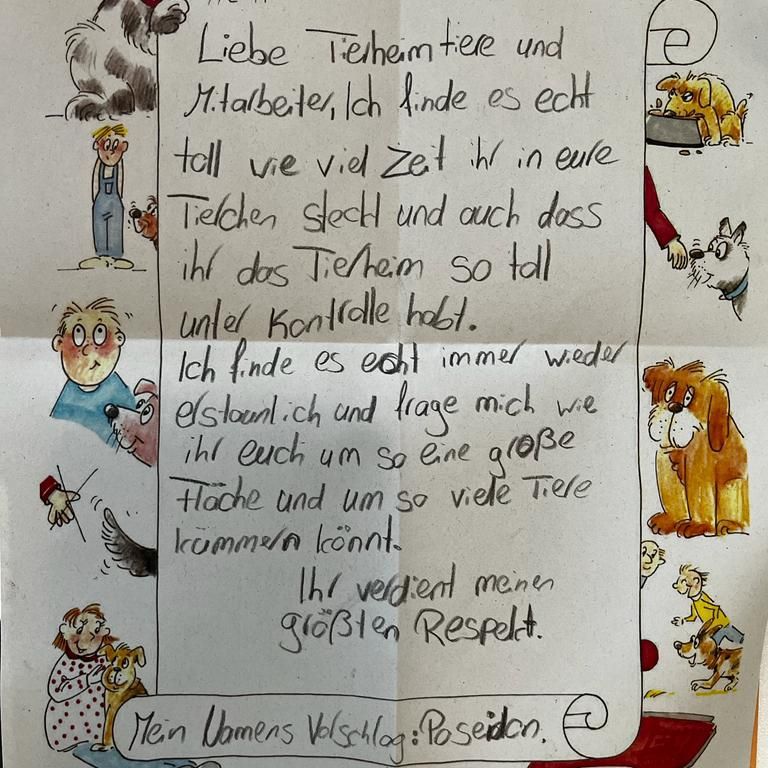 Liebe Tierheimtiere und
Mitarbeiter, Ich finde es echt
toll wie viel Zeit ihr in eure
Tierchen steckt und auch dass
ihr das Tierheim so toll
unter Kontrolle habt.
Ich finde es echt immer wieder
erstaunlich und frage mich wie
ihr euch um so eine große
Fläche und um so viele Tiere
kümmern könnt.
Ihr verdient meinen
größten Respekt.
Mein Namens Vorschlag: Poseidon.